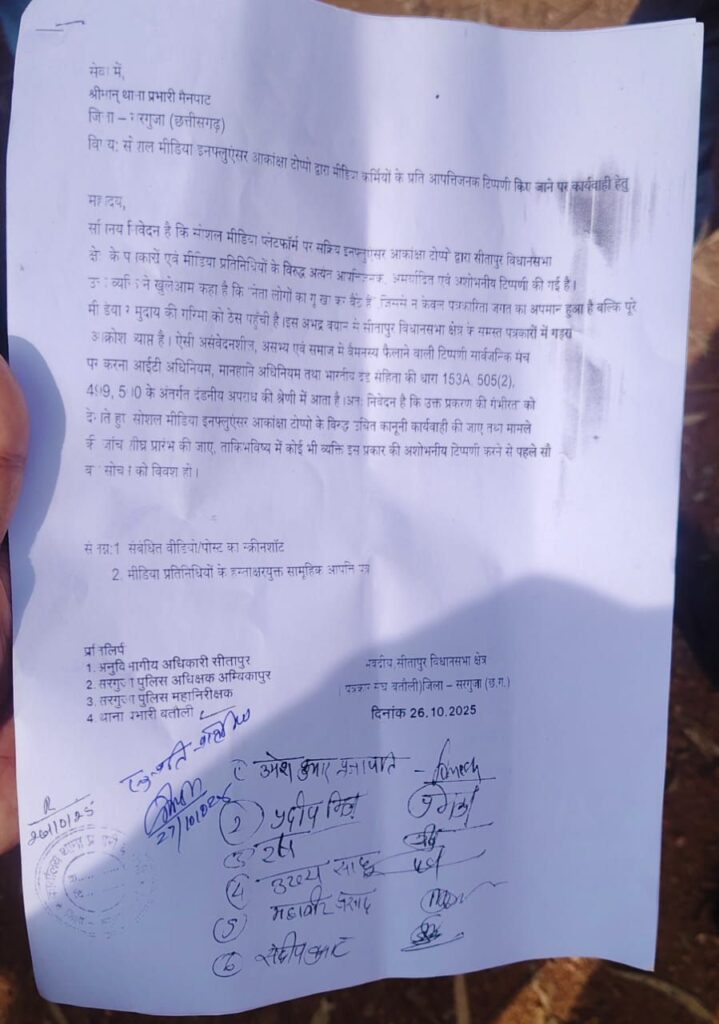 सेवा में,
श्रीमान् थाना प्रभारी मैनपाट
जिला – सरगुजा (छत्तीसगढ़)
विषय: सोशल मीडिया इनफ्लुएंसर आकांक्षा टोप्पो द्वारा मीडिया कर्मियों के प्रति आपत्तिजनक टिप्पणी किए जाने पर कार्यवाही हेतु
महोदय,
सविनय निवेदन है कि सोशल मीडिया प्लेटफॉर्म पर सक्रिय इनफ्लुएंसर आकांक्षा टोप्पो द्वारा सीतापुर विधानसभा
क्षेत्र के पत्रकारों एवं मीडिया प्रतिनिधियों के विरुद्ध अत्यंत आपत्तिजनक, अमर्यादित एवं अशोभनीय टिप्पणी की गई है।
उक्त व्यक्ति ने खुलेआम कहा है कि "नेता लोगों का गू खाकर बैठे हैं", जिससे न केवल पत्रकारिता जगत का अपमान हुआ है बल्कि पूरे
मीडिया समुदाय की गरिमा को ठेस पहुंची है।इस अभद्र बयान से सीतापुर विधानसभा क्षेत्र के समस्त पत्रकारों में गहरा
आक्रोश व्याप्त है। ऐसी असंवेदनशील, असभ्य एवं समाज में वैमनस्य फैलाने वाली टिप्पणी सार्वजनिक मंच
पर करना आईटी अधिनियम, मानहानि अधिनियम तथा भारतीय दंड संहिता की धारा 153A, 505(2),
499, 500 के अंतर्गत दंडनीय अपराध की श्रेणी में आता है।अतः निवेदन है कि उक्त प्रकरण की गंभीरता को
देखते हुए सोशल मीडिया इनफ्लुएंसर आकांक्षा टोप्पो के विरुद्ध उचित कानूनी कार्यवाही की जाए तथा मामले
की जांच शीघ्र प्रारंभ की जाए, ताकिभविष्य में कोई भी व्यक्ति इस प्रकार की अशोभनीय टिप्पणी करने से पहले सौ
बार सोचने को विवश हो।
संलग्न:1 संबंधित वीडियो/पोस्ट का स्क्रीनशॉट
2. मीडिया प्रतिनिधियों के हस्ताक्षरयुक्त सामूहिक आपत्ति पत्र
प्रतिलिपि
1. अनुविभागीय अधिकारी सीतापुर
2. सरगुजा पुलिस अधिक्षक अम्बिकापुर
3. सरगुजा पुलिस महानिरीक्षक
4 थाना प्रभारी बतौली
भवदीय सीतापुर विधानसभा क्षेत्र
पत्रकार संघ बतौली)जिला – सरगुजा (छ.ग.)
दिनांक 26.10.2025
27/10/025
1) उमेश कुमार प्रजापति
2) प्रदीप
3)
4)
5) महावीर प्रसाद
6) संदीप कुमार